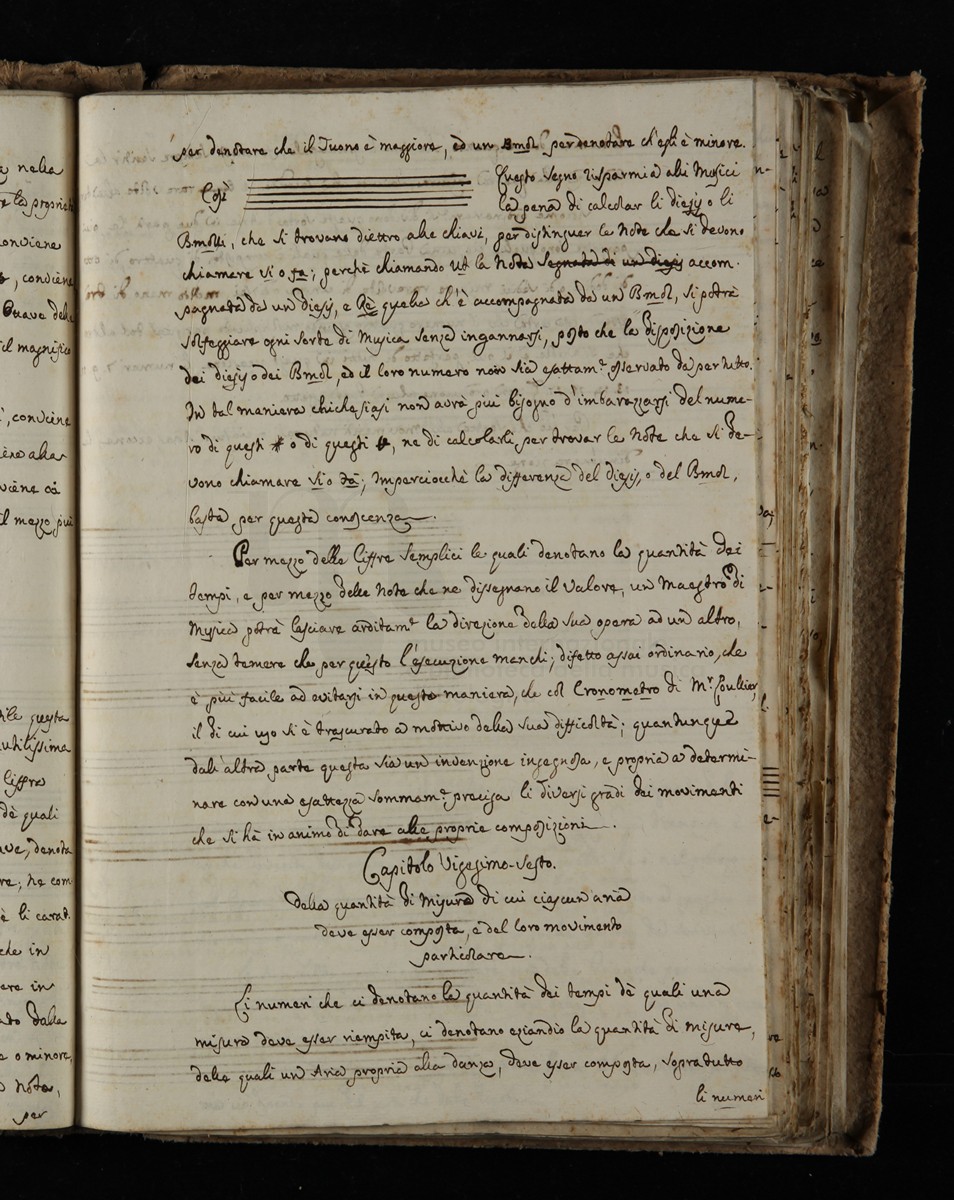 e nella
re la propriet
onviene
, conviene
Ottave della
il magnifico
, conviene
il mezzo più
questa
utilissima
Ciffra
de quali
, denota
che in
dalla
e o minore,
Note,
per
per denotare che il Tuono è maggiore, ed un Bmol per denotare ch'egli è minore.
Così
Questo segno risparmia alli Musici
la pena di calcolar li diesy o li
Bmolli, che si trovano diettro alle chiavi, per distinguer le Note che si devono
chiamare si o fa; perchè chiamando Ut la Nota segnata di un diesy accom-
pagnata da un diesy, e Rè quella ch'è accompagnata da un Bmol, si potrà
solfeggiare ogni sorte di Musica senza ingannarsi, posto che la disposizione
dei diesy o dei Bmol, ed il loro numero non sia esattam.e osservato da per tutto.
In tal maniera chichesiasi non avrà più bisogno d'imbarazzarsi del nume-
ro di questi # o di questi b, ne di calcolarli per trovar le Note che si de-
vono chiamare si o fa; Imperciocchè la differenza del diesy, o del Bmol,
basta per questa conoscenza.
Per mezzo delle Ciffre semplici le quali denotano la quantità dei
tempi, e per mezzo delle Note che ne dissegnano il valore, un Maestro di
Musica potrà lasciare arditam.e la direzione della sua opera ad un altro,
senza temere che per questo l'esecuzione manchi; difetto assai ordinario, che
è più facile ad evitarsi in questa maniera, che col Cronometro di M.r Loullier,
il di cui uso si è trascurato a mottivo della sua difficoltà; quantunque
dall'altra parte questa sia un invenzione ingegnosa, e propria a determi-
nare con una esattezza sommam.e precisa li diversi gradi dei movimenti
che si hà in animo di dare alle proprie composizioni.
Capitolo Vigesimo-sesto.
Della quantità di Misure di cui ciascun aria
deve esser composta, e del loro movimento
particolare.
Li numeri che ci denotano la quantità dei tempi dè quali una
misura deve esser riempita, ci denotano eziandio la quantità di misure,
delle quali un Aria propria alla danza, deve esser composta, sopratutto
li numeri